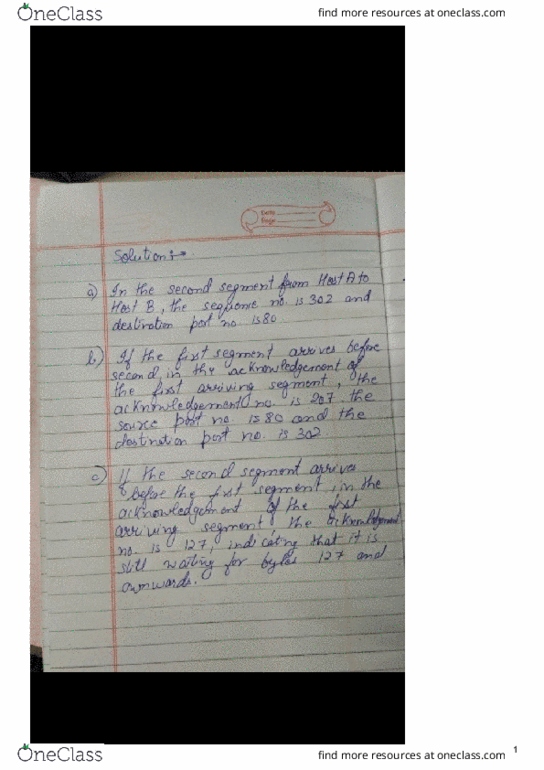 OneClass
find more resources at oneclass.com
Date
Page
Solution:→
a) In the second segment from Host A to
Host B, the sequence no. is 302 and
destination port no. is 80
b.) If the first segment arrives before
second in the acknowledgement of
the first arriving segment, the
acknowledgement no. is 207. the
source port no. is 80 and the
destination port no. is 302
c) If the second segment arrives
before the first segment, in the
acknowledgement of the first
arriving segment, the acknowledgement
no. is 127, indicating that it is
still waiting for bytes 127 and
ownwards.
OneClass
find more resources at oneclass.com
1